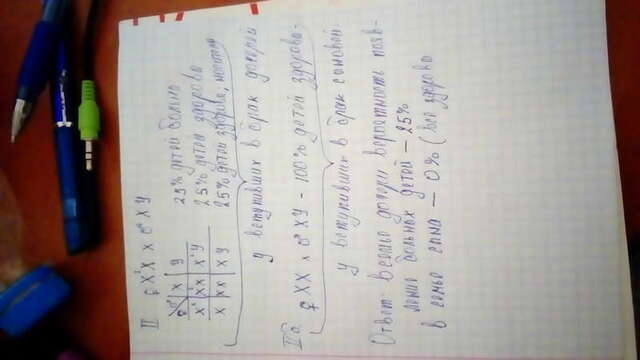 II ♀ X²X x ♂ XY
♀ ♂ X Y
X² X²X X²Y
X XX XY
25% детей больно
25% детей здорово
25% детей здоров, носители
у вступивших в брак дочерей
II б. ♀ XX x ♂ XY - 100% детей здорово.
у вступивших в брак сыновей.
Ответ: в семье дочери вероятность появ-
ление больных детей - 25%
в семье сына - 0% (все здорово